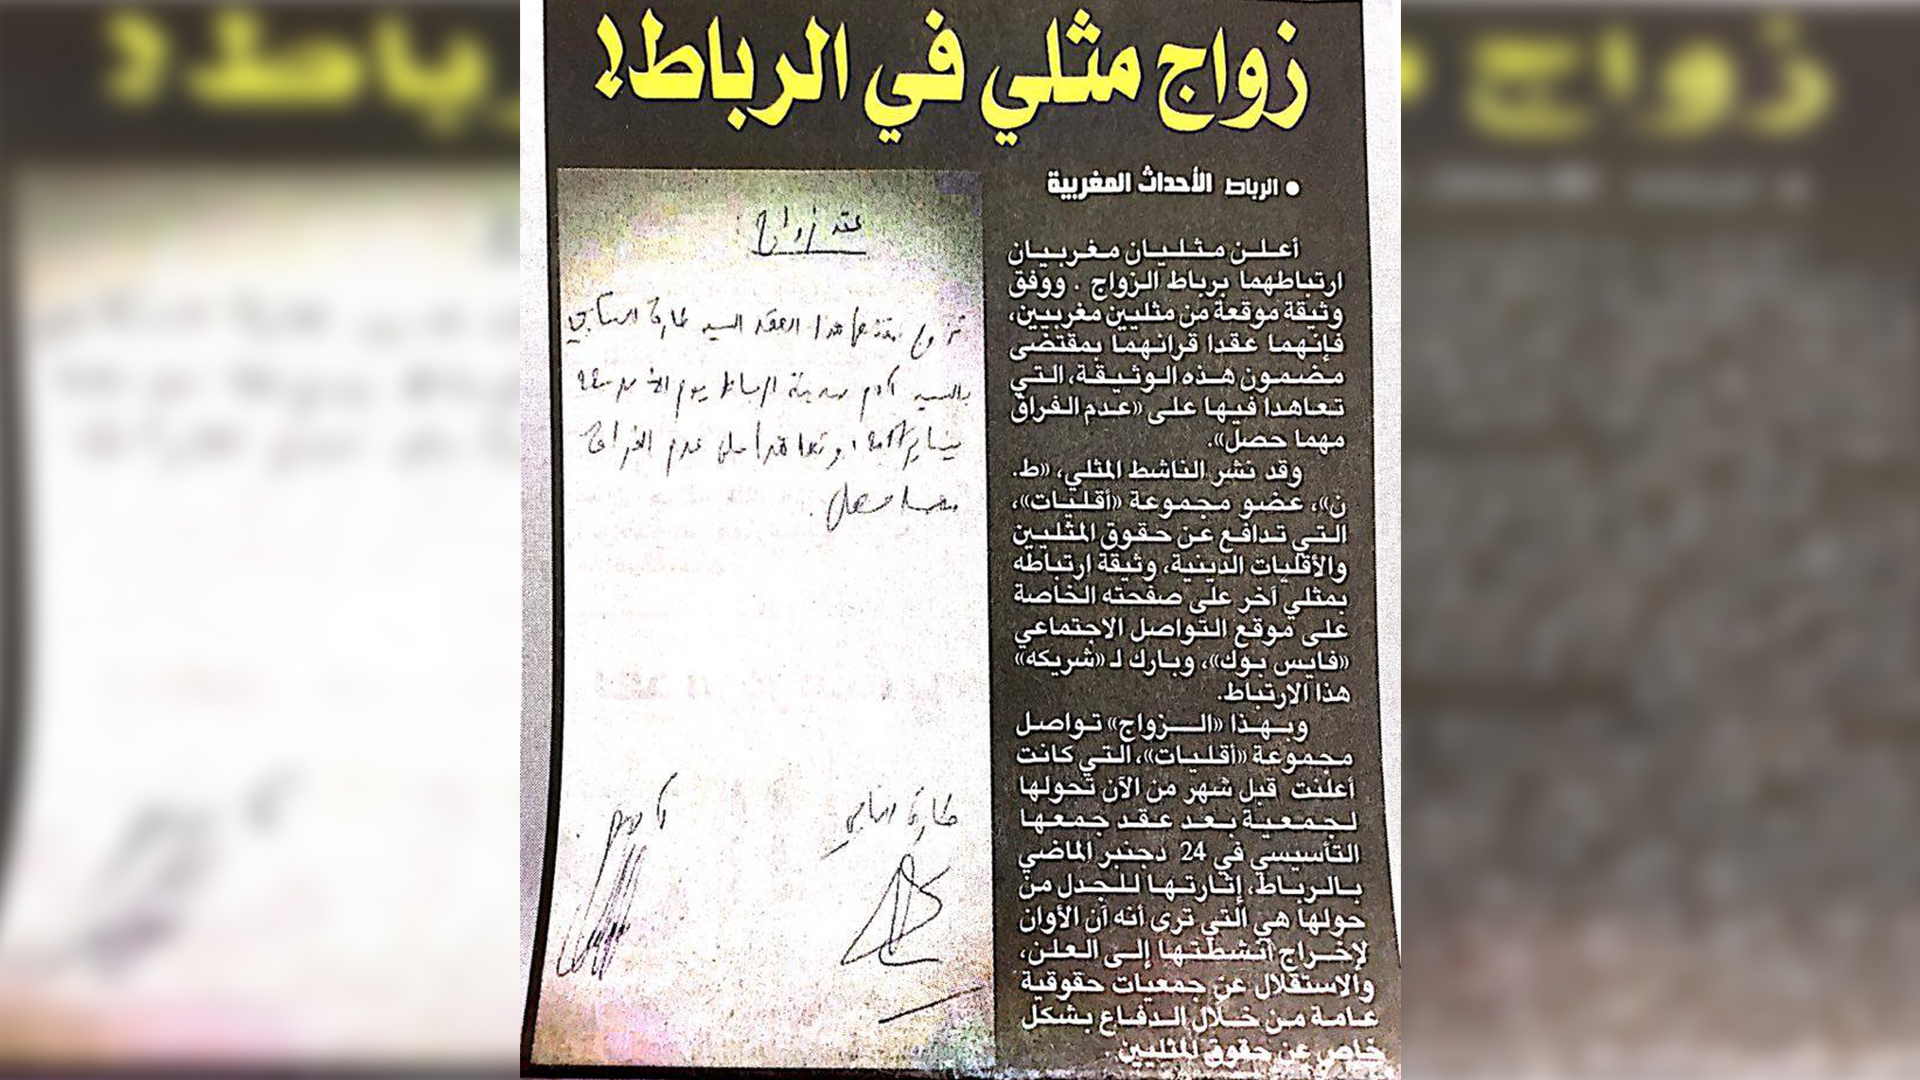 زواج مثلي في الرباط!
• الرباط الأحداث المغربية
أعلن مثليان مغربيان
ارتباطهما برباط الزواج . ووفق
وثيقة موقعة من مثليين مغربيين،
فإنهما عقدا قرانهما بمقتضى
مضمون هذه الوثيقة، التي
تعاهدا فيها على «عدم الفراق
مهما حصل».
وقد نشر الناشط المثلي، «ط.
ن»، عضو مجموعة «أقليات»،
التي تدافع عن حقوق المثليين
والأقليات الدينية، وثيقة ارتباطه
بمثلي آخر على صفحته الخاصة
على موقع التواصل الاجتماعي
«فايس بوك»، وبارك لـ «شريكه»
هذا الارتباط.
وبهذا «الزواج» تواصل
مجموعة «أقليات»، التي كانت
أعلنت قبل شهر من الآن تحولها
لجمعية بعد عقد جمعها
التأسيسي في 24 دجنبر الماضي
بالرباط، إثارتها للجدل من
حولها هي التي ترى أنه آن الأوان
لإخراج أنشطتها إلى العلن،
والاستقلال عن جمعيات حقوقية
عامة من خلال الدفاع بشكل
خاص عن حقوق المثليين .
عقد زواج
تزوج بمقتضى هذا العقد السيد طارق
بالسيد آدم بمدينة الرباط يوم الأحد 22
يناير وتعاهدا على عدم الفراق
مهما حصل .
طارق
آدم